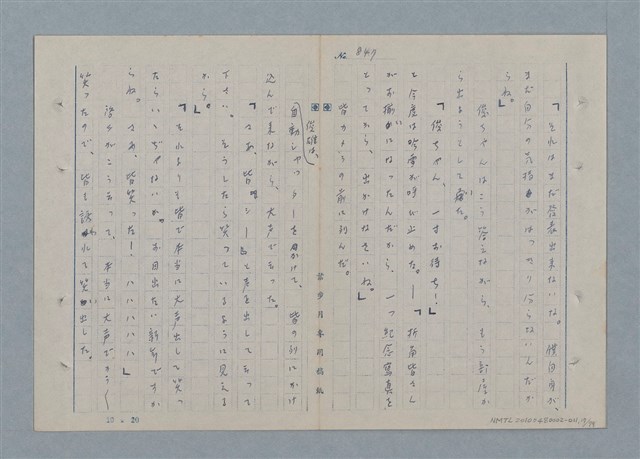 No. 047
「それはまだ発表出来ないな。僕自身が、
まだ自分の気持がはっきり分らないんだか
らね。」
俊ちゃんはこう答えながら、もう部屋か
ら出ようとして
「俊ちゃん、一寸お待ち！」
と今度は吟雪が呼び止めた。「折角皆さん
がお揃いになったんだから、一つ紀念寫真を
とってから、出かけなさいね。」
皆カメラの前に列んだ。
俊雄は、
自動シャッターをかけて、皆の列にかけ
込んで来ながら、大声で云った。
「さあ、皆。シーと声を出して云って
下さい。そうしたら笑っているように見える
から。」
「それよりも皆で本当に大声出して笑っ
たらいいぢゃないか。お目出たい新年ですか
らね。さあ、皆笑った！ハハハハハ」
がこう云って、本当に大声で
笑ったので、皆も誘われて笑い出した。
葉步月專用稿紙
10 × 20
NMTL